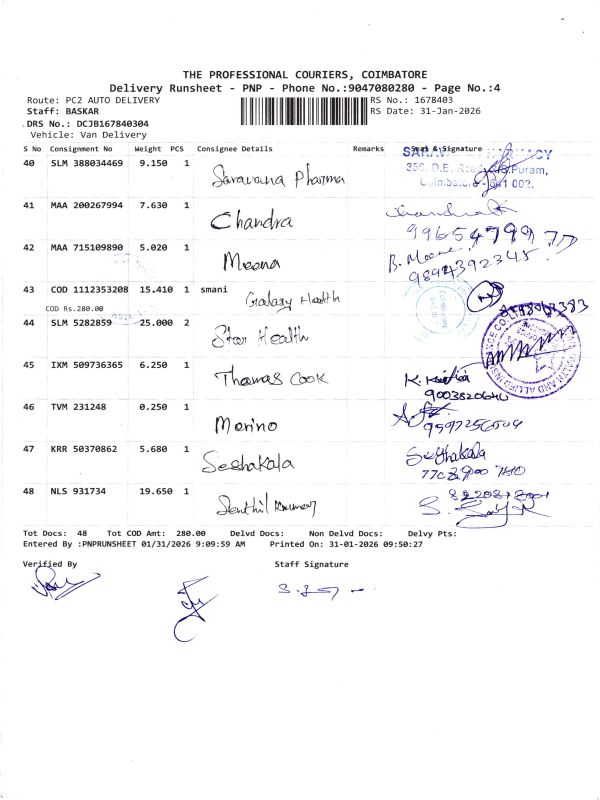 THE PROFESSIONAL COURIERS, COIMBATORE
Delivery Runsheet - PNP - Phone No.:9047080280 - Page No.:4
Route: PC2 AUTO DELIVERY RS No.: 1678403
Staff: BASKAR RS Date: 31-Jan-2026
DRS No.: DCJB167840304
Vehicle: Van Delivery
S No Consignment No Weight PCS Consignee Details Remarks Seal & Signature
40 SLM 388034469 9.150 1 Saravana Pharma
41 MAA 200267994 7.630 1 Chandra
42 MAA 715109890 5.020 1 Meena B. Meena
9894392345
43 COD 1112353208 15.410 1 smani Galaxy Health
COD Rs.280.00
44 SLM 5282859 25.000 2 Star Health
45 IXM 509736365 6.250 1 Thomas Cook
9003820640
46 TVM 231248 0.250 1 Merino
47 KRR 50370862 5.680 1 Seshakala
48 NLS 931734 19.650 1
Tot Docs: 48 Tot COD Amt: 280.00 Delvd Docs: Non Delvd Docs: Delvy Pts:
Entered By :PNPRUNSHEET 01/31/2026 9:09:59 AM Printed On: 31-01-2026 09:50:27
Verified By Staff Signature